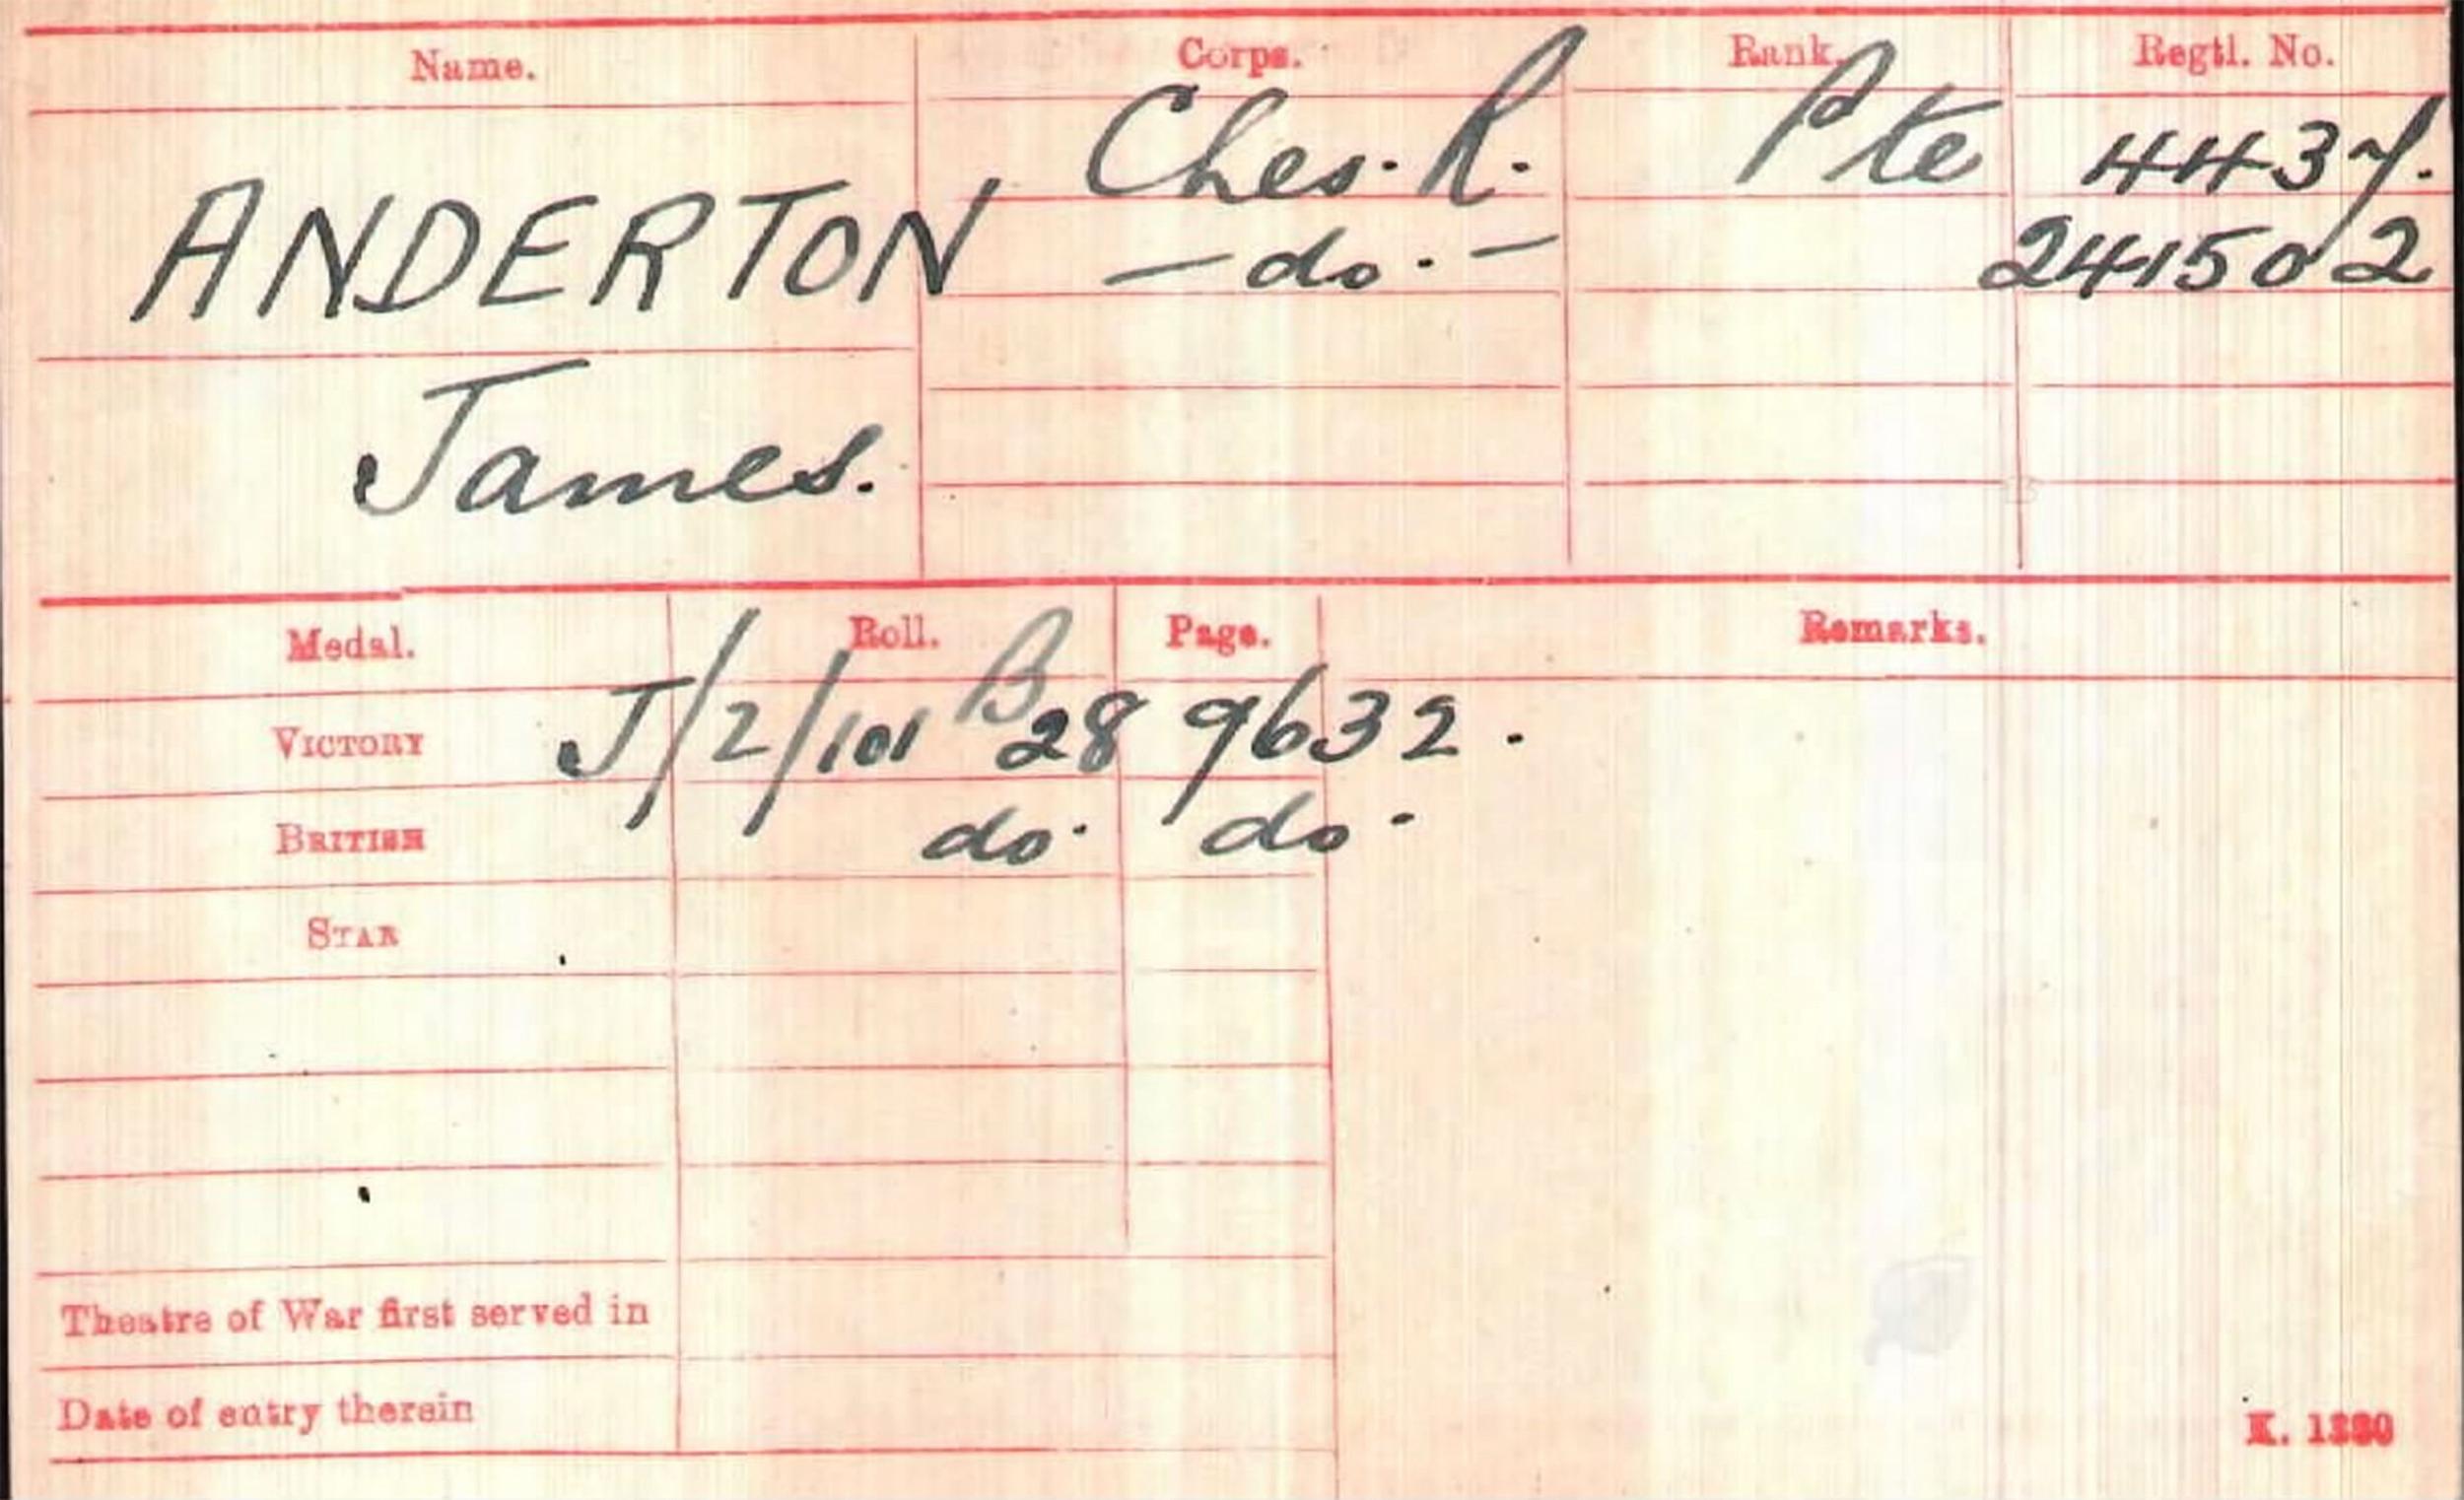 Name. Corps. Rank. Regtl. No.
ANDERTON Ches. R. Pte 4437.
— do. — 241502
James.
Medal. Roll. Page. Remarks.
VICTORY J/2/101 B 28 9632.
BRITISH do. do.
STAR
Theatre of War first served in
Date of entry therein
K. 1380